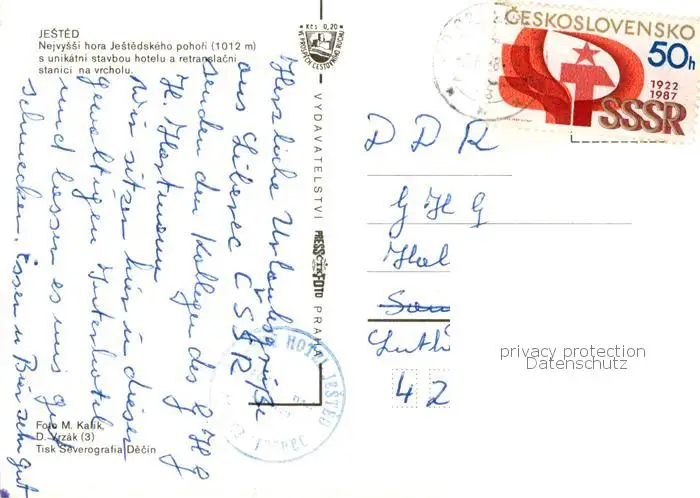 JEŠTĚD
Nejvyšší hora Ještědského pohoří (1012 m)
s unikátní stavbou hotelu a retranslační
stanicí na vrcholu.
Kčs 0,20
VE PROSPĚCH CESTOVNÍHO RUCHU
ČESKOSLOVENSKO
50h
1922
1987
SSSR
Herzliche Urlaubsgrüße
aus Liberec ČSSR
senden den Kollegen des GHG
H. Hostmann
Wir sitzen hier in dieser
gewaltigen Interhotel
und lassen es uns gut
schmecken. Essen u Bier sehr gut
VYDAVATELSTVÍ PRESSFOTO PRAHA
DDR
GHG
Hal
Luth
42
HOTEL JEŠTĚD
privacy protection
Datenschutz
Foto M. Kalík,
D. Vrzák (3)
Tisk Severografia Děčín